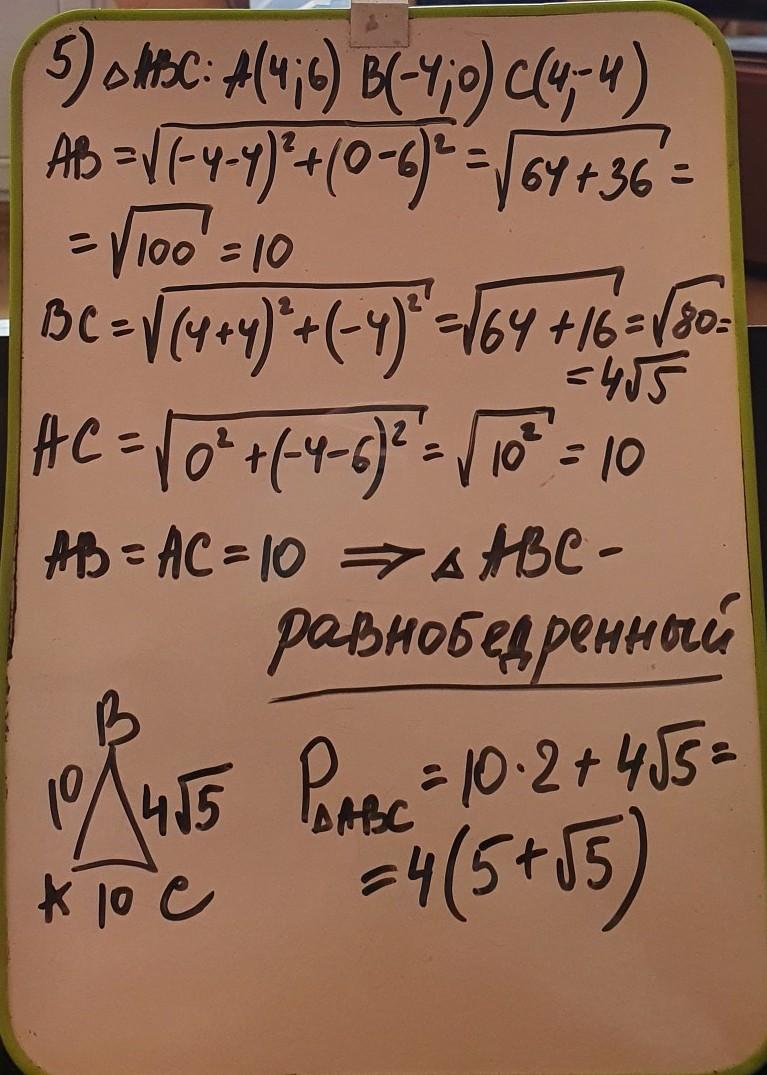 5) △ABC: A(4;6) B(-4;0) C(4;-4)
AB = √((-4-4)² + (0-6)²) = √(64+36) =
= √100 = 10
BC = √((4+4)² + (-4)²) = √(64+16) = √80 =
= 4√5
AC = √(0² + (-4-6)²) = √(10²) = 10
AB = AC = 10 ⇒ △ABC -
равнобедренный
B
10 4√5
A 10 C
P△ABC = 10·2 + 4√5 =
= 4(5+√5)